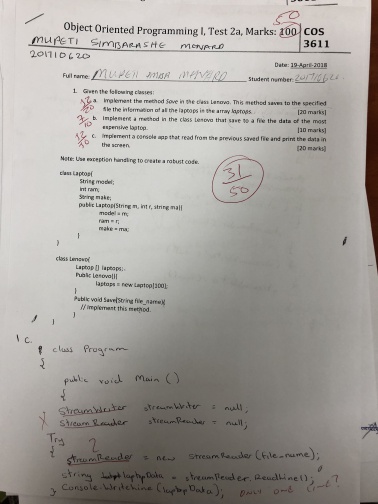 50
Object Oriented Programming I, Test 2a, Marks: 100 COS 3611
MUPETI SIMBARASHE
201710620
Date: 19-April-2018
Full name: MUPETI Student number: 201710620
1. Given the following classes:
a. Implement the method Save in the class Lenovo. This method saves to the specified
file the information of all the laptops in the array laptops. [20 marks]
b. Implement a method in the class Lenovo that save to a file the data of the most
expensive laptop. [10 marks]
c. Implement a console app that read from the previous saved file and print the data in
the screen. [20 marks]
Note: Use exception handling to create a robust code.
31
50
class Laptop{
String model;
int ram;
String make;
public Laptop(String m, int r, string ma){
model = m;
ram = r;
make = ma;
}
}
class Lenovo{
Laptop [] laptops;
Public Lenovo(){
laptops = new Laptop[100];
}
Public void Save(String file_name){
// Implement this method.
}
}
1 c.
class Program
{
public void Main ()
{
StreamWriter streamWriter = null;
Stream Reader streamReader = null;
Try
2
{ streamReader = new StreamReader (file_name);
string laptopData = streamReader.ReadLine();
Console.WriteLine (laptopData);